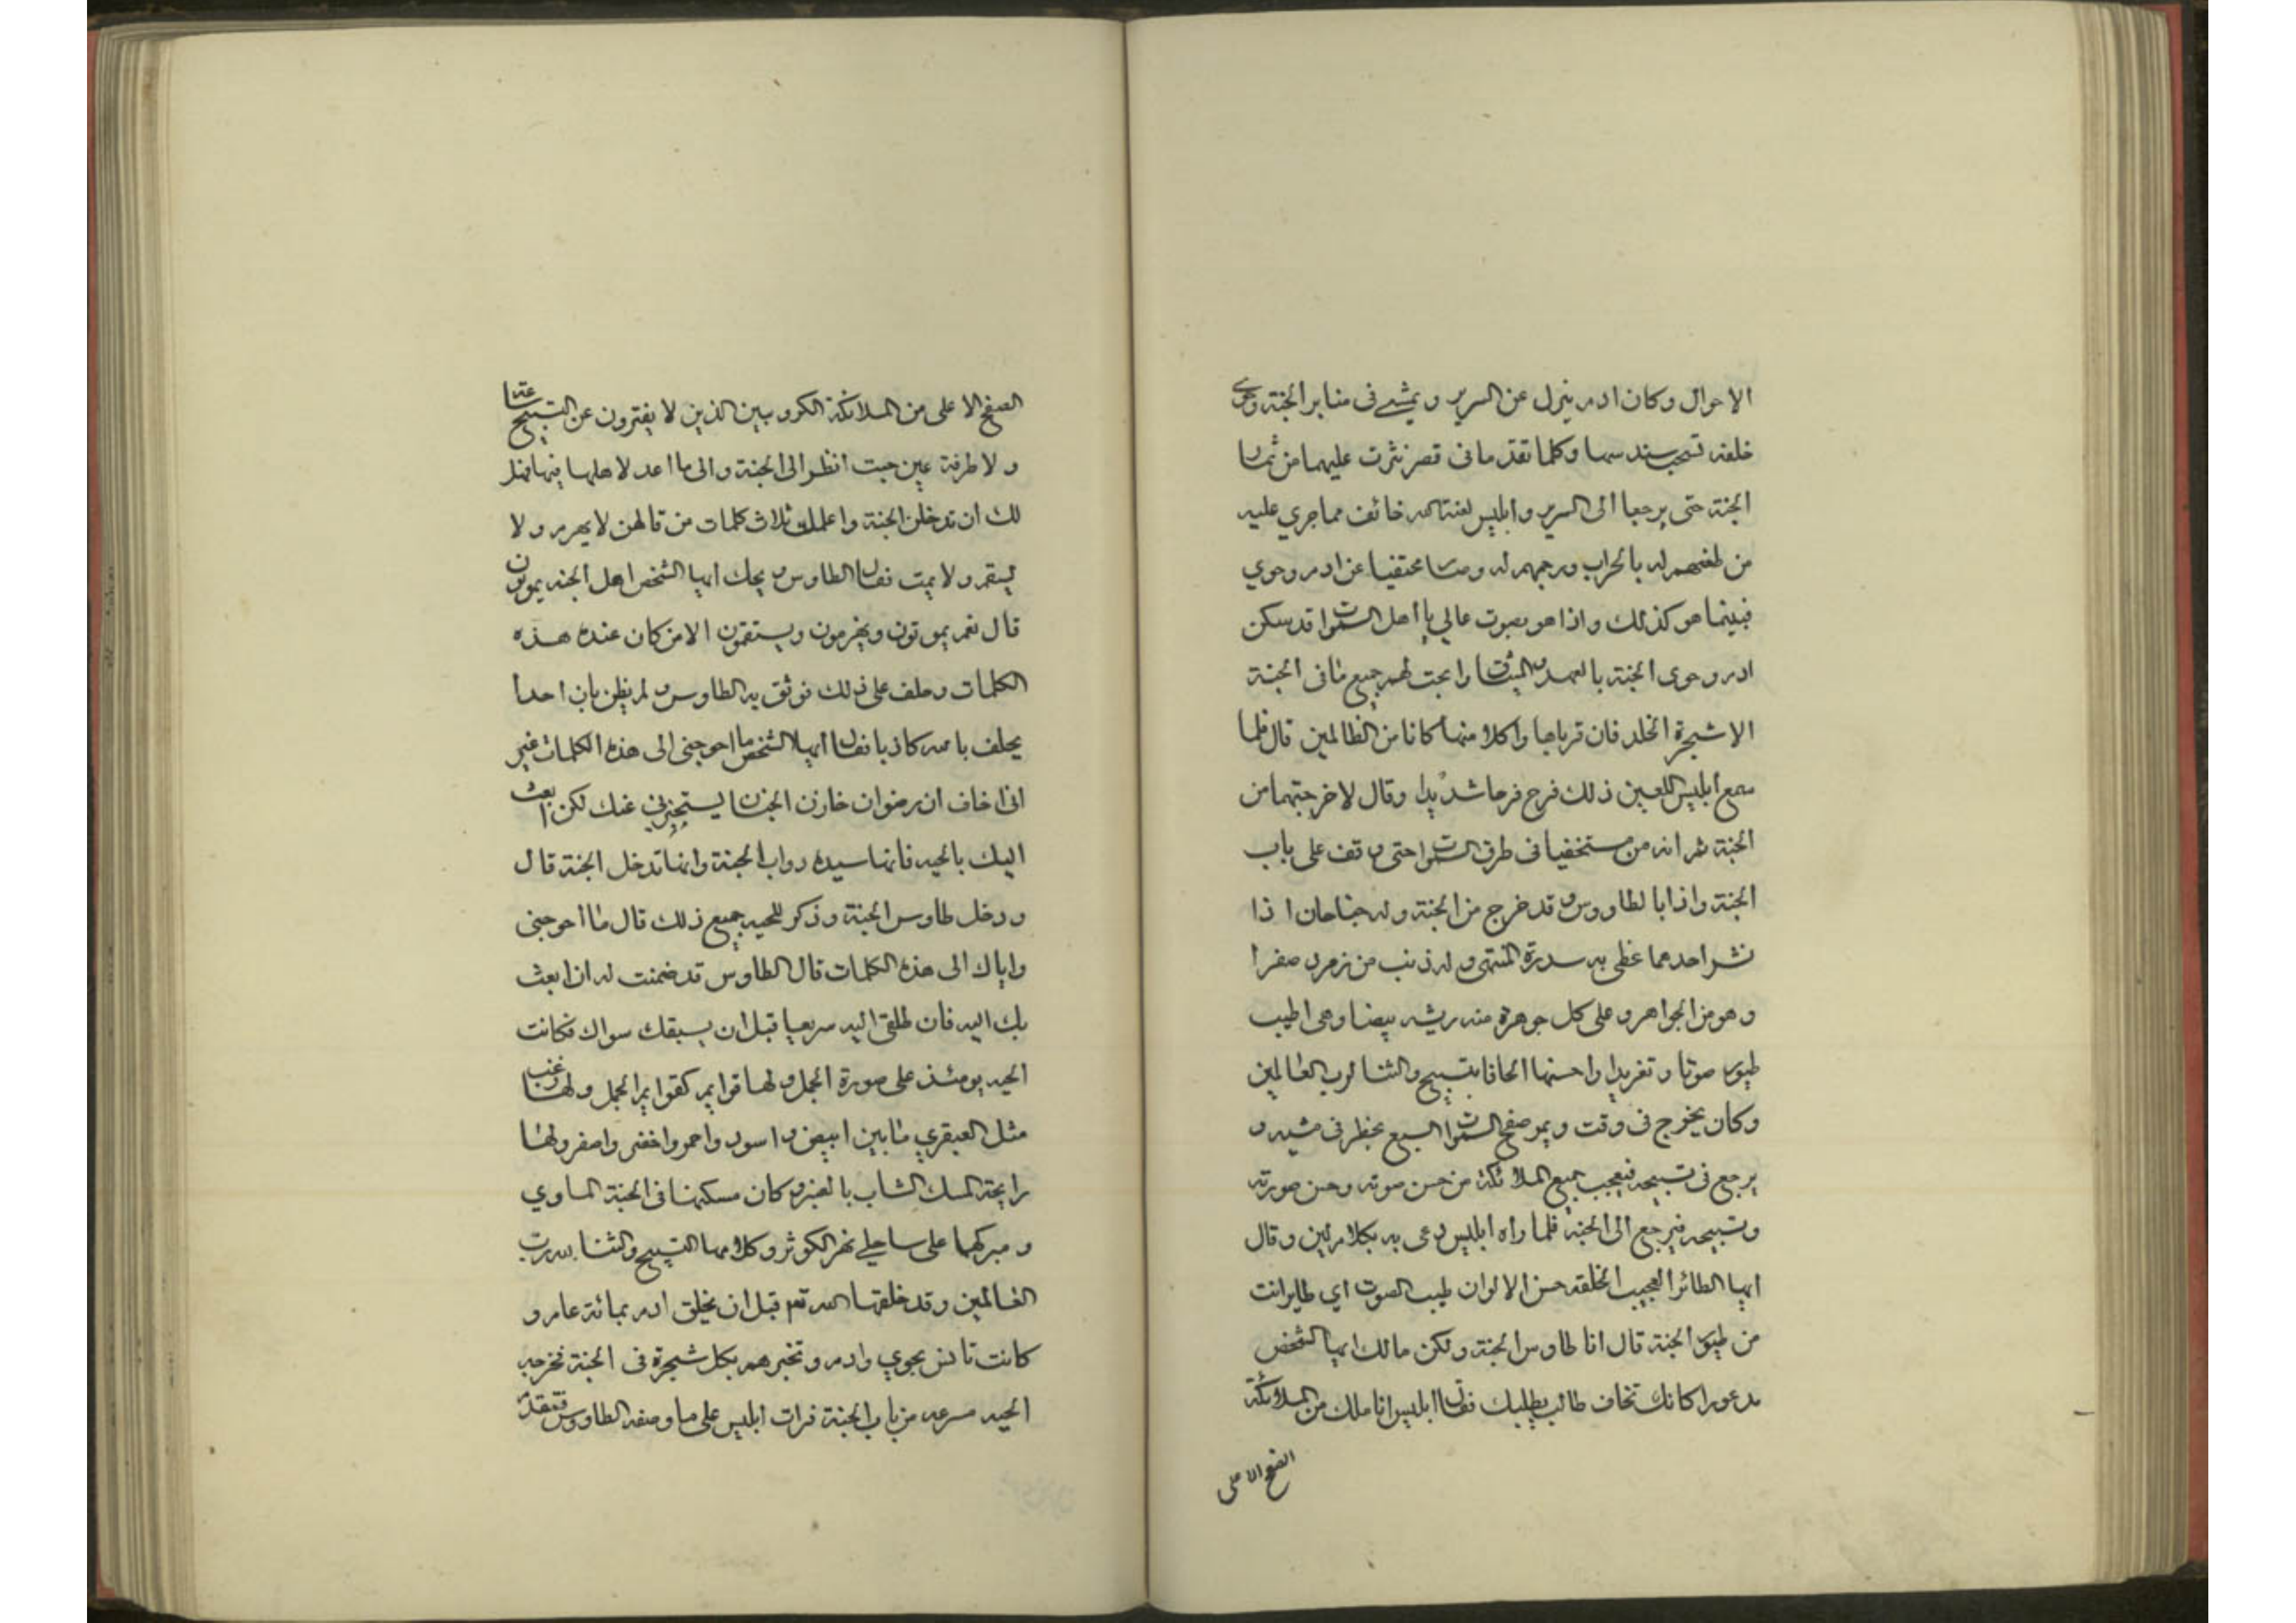 الاحوال وكان ادم ينزل عن السرير ويمشي فى منابر الجنة وحوى
خلفه تسحب سندسها وكلما تقدما فى قصر نثرت عليهما من ثمار
الجنة حتى يرجعا الى السرير وابليس لعنة الله خائف مما جري عليه
من طعنهم له بالحراب ورجمهم له مختفيا عن ادم وحوي
فبينما هو كذلك واذا هو بصوت عالي يا أهل السموات قد سكن
ادم وحوى الجنة بالعهد والميثاق وابحت لهم جميع مافى الجنة
الا شجرة الخلد فان قرباها واكلا منها كانا من الظالمين قال فلما
سمع ابليس اللعين ذلك فرح فرحا شديدا وقال لاخرجنهما من
الجنة ثم انه مستخفيا فى طرق السموات حتى وقف على باب
الجنة واذا بالطاووس وقد خرج من الجنة وله جناحان اذا
نشر احدهما غطى به سدرة المنتهى وله ذنب من زمرد صفرا
وهو من الجواهر وعلى كل جوهرة منه ريشه بيضا وهى اطيب
طيور صوتا وتغريدا واحسنها الحانا بتسبيح والثنا لرب العالمين
وكان يخرج فى وقت ويمر صفح السموات السبع يخطر فى مشيه و
يرجع فى تسبيحه فيعجب جميع الملائكة من حسن صوته وحسن صورته
وتسبيحه فيرجع الى الجنة فلما راه ابليس دعى به بكلام لين وقال
ايها الطائر العجيب الخلقه حسن الالوان طيب الصوت اي طاير انت
من طيور الجنة قال انا طاوس الجنة ولكن مالك ايها الشخص
مدعورا كانك تخاف طالب يطلبك فقال ابليس انا ملك من الملائكة
الصفح الاعلى
الصفح الاعلى من الملائكة الكروبيين الذين لا يفترون عن التسبيح ساعة
ولا طرفة عين جيت انظر الى الجنة والى ما اعد لاهلها فيها فهل
لك ان تدخلنى الجنة واعلمك ثلاث كلمات من قالهن لا يهرم ولا
يسقم ولا يمت فقال الطاوس ويحك ايها الشخص اهل الجنه يموتون
قال نعم يموتون ويهرمون ويستقمون الا من كان عنده هذه
الكلمات وحلف على ذلك فوثق به الطاوس ولم يظن بان احدا
يحلف بالله كاذبا فقال ايها الشخص ما احوجنى الى هذه الكلمات غير
انى اخاف ان رضوان خازن الجنان يستخبرنى عنك لكن ابعث
اليك بالحيه فانها سيدة دواب الجنة وانها تدخل الجنة قال
ودخل طاوس الجنة وذكر للحيه جميع ذلك قال ما احوجنى
واياك الى هذه الكلمات قال الطاوس قد ضمنت له ان ابعث
بك اليه فانطلقى اليه سريعا قبل ان يسبقك سواك فكانت
الحيه يومئذ على صورة الجمل ولها قوايم كقوايم الجمل ولها زغب
مثل العبقري مابين ابيض واسود واحمر واخضر واصفر ولها
رايحة المسك الشاب بالعنبر وكان مسكنها فى الجنة الماوي
ومبركها على ساحلي نهر الكوثر وكلامها التسبيح والثنا لله رب
العالمين وقد خلقها الله تعم قبل ان يخلق ادم بمائة عام و
كانت تانس بحوي وادم وتخبرهم بكل شجرة فى الجنة فخرجه
الحيه مسرعه من باب الجنة فرات ابليس على ما وصفه الطاووس فتقدم